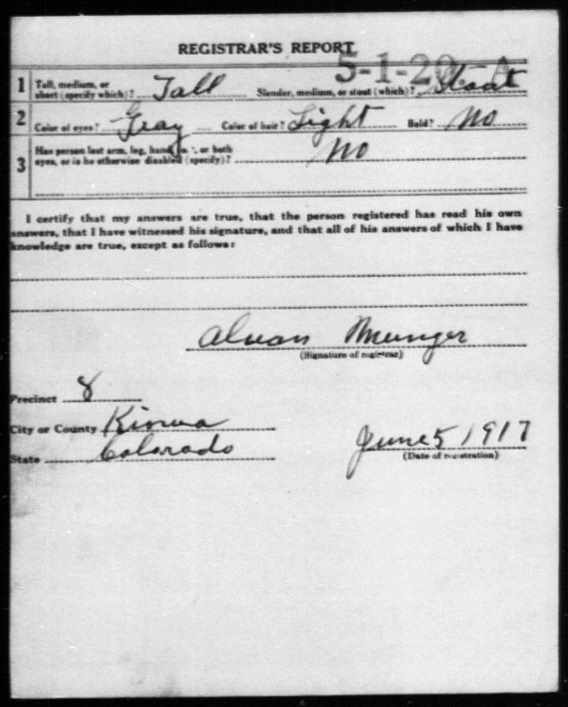 REGISTRAR'S REPORT
5-1-20. A
1 Tall, medium, or short (specify which)? Tall Slender, medium, or stout (which)? Stout
2 Color of eyes? Gray Color of hair? Light Bald? No
3 Has person lost arm, leg, hand, or both
eyes, or is he otherwise disabled (specify)? No
I certify that my answers are true, that the person registered has read his own
answers, that I have witnessed his signature, and that all of his answers of which I have
knowledge are true, except as follows:
Alvan Munger
(Signature of registrar)
Precinct 8
City or County Kiowa
State Colorado
June 5 1917
(Date of registration)